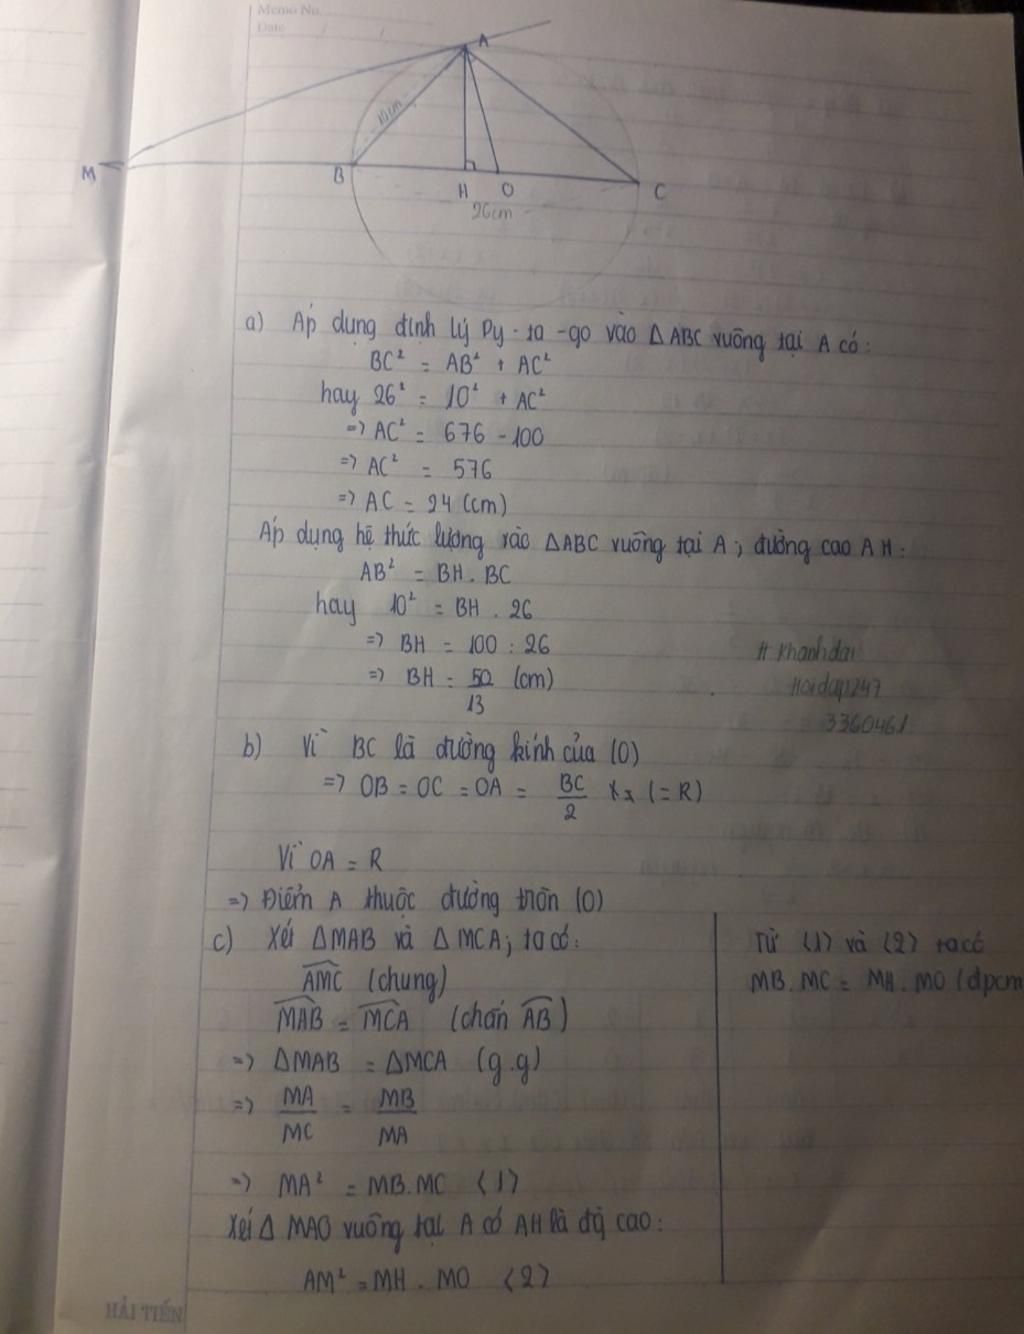 Memo No.
Date
A
10cm
M
B
H
O
C
26cm
a) Áp dụng định lý Py-ta-go vào △ABC vuông tại A có:
BC² = AB² + AC²
hay 26² = 10² + AC²
=> AC² = 676 - 100
=> AC² = 576
=> AC = 24 (cm)
Áp dụng hệ thức lượng vào △ABC vuông tại A; đường cao AH:
AB² = BH . BC
hay 10² = BH . 26
=> BH = 100 : 26
=> BH = 50/13 (cm)
# Khanhdai
Hoidap247
3360461
b) Vì BC là đường kính của (O)
=> OB = OC = OA = BC/2 (= R)
Vì OA = R
=> Điểm A thuộc đường tròn (O)
c) Xét △MAB và △MCA; ta có:
AMC (chung)
MAB = MCA (chắn AB)
=> △MAB = △MCA (g.g)
=> MA/MC = MB/MA
=> MA² = MB.MC <1>
Xét △ MAO vuông tại A có AH là đg cao:
AM² = MH . MO <2>
Từ <1> và <2> ta có
MB. MC = MA . MO (đpcm
HẢI TIẾN